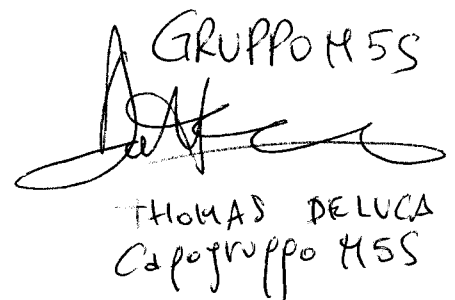 GRUPPO M5S
THOMAS DELUCA
Capogruppo M5S